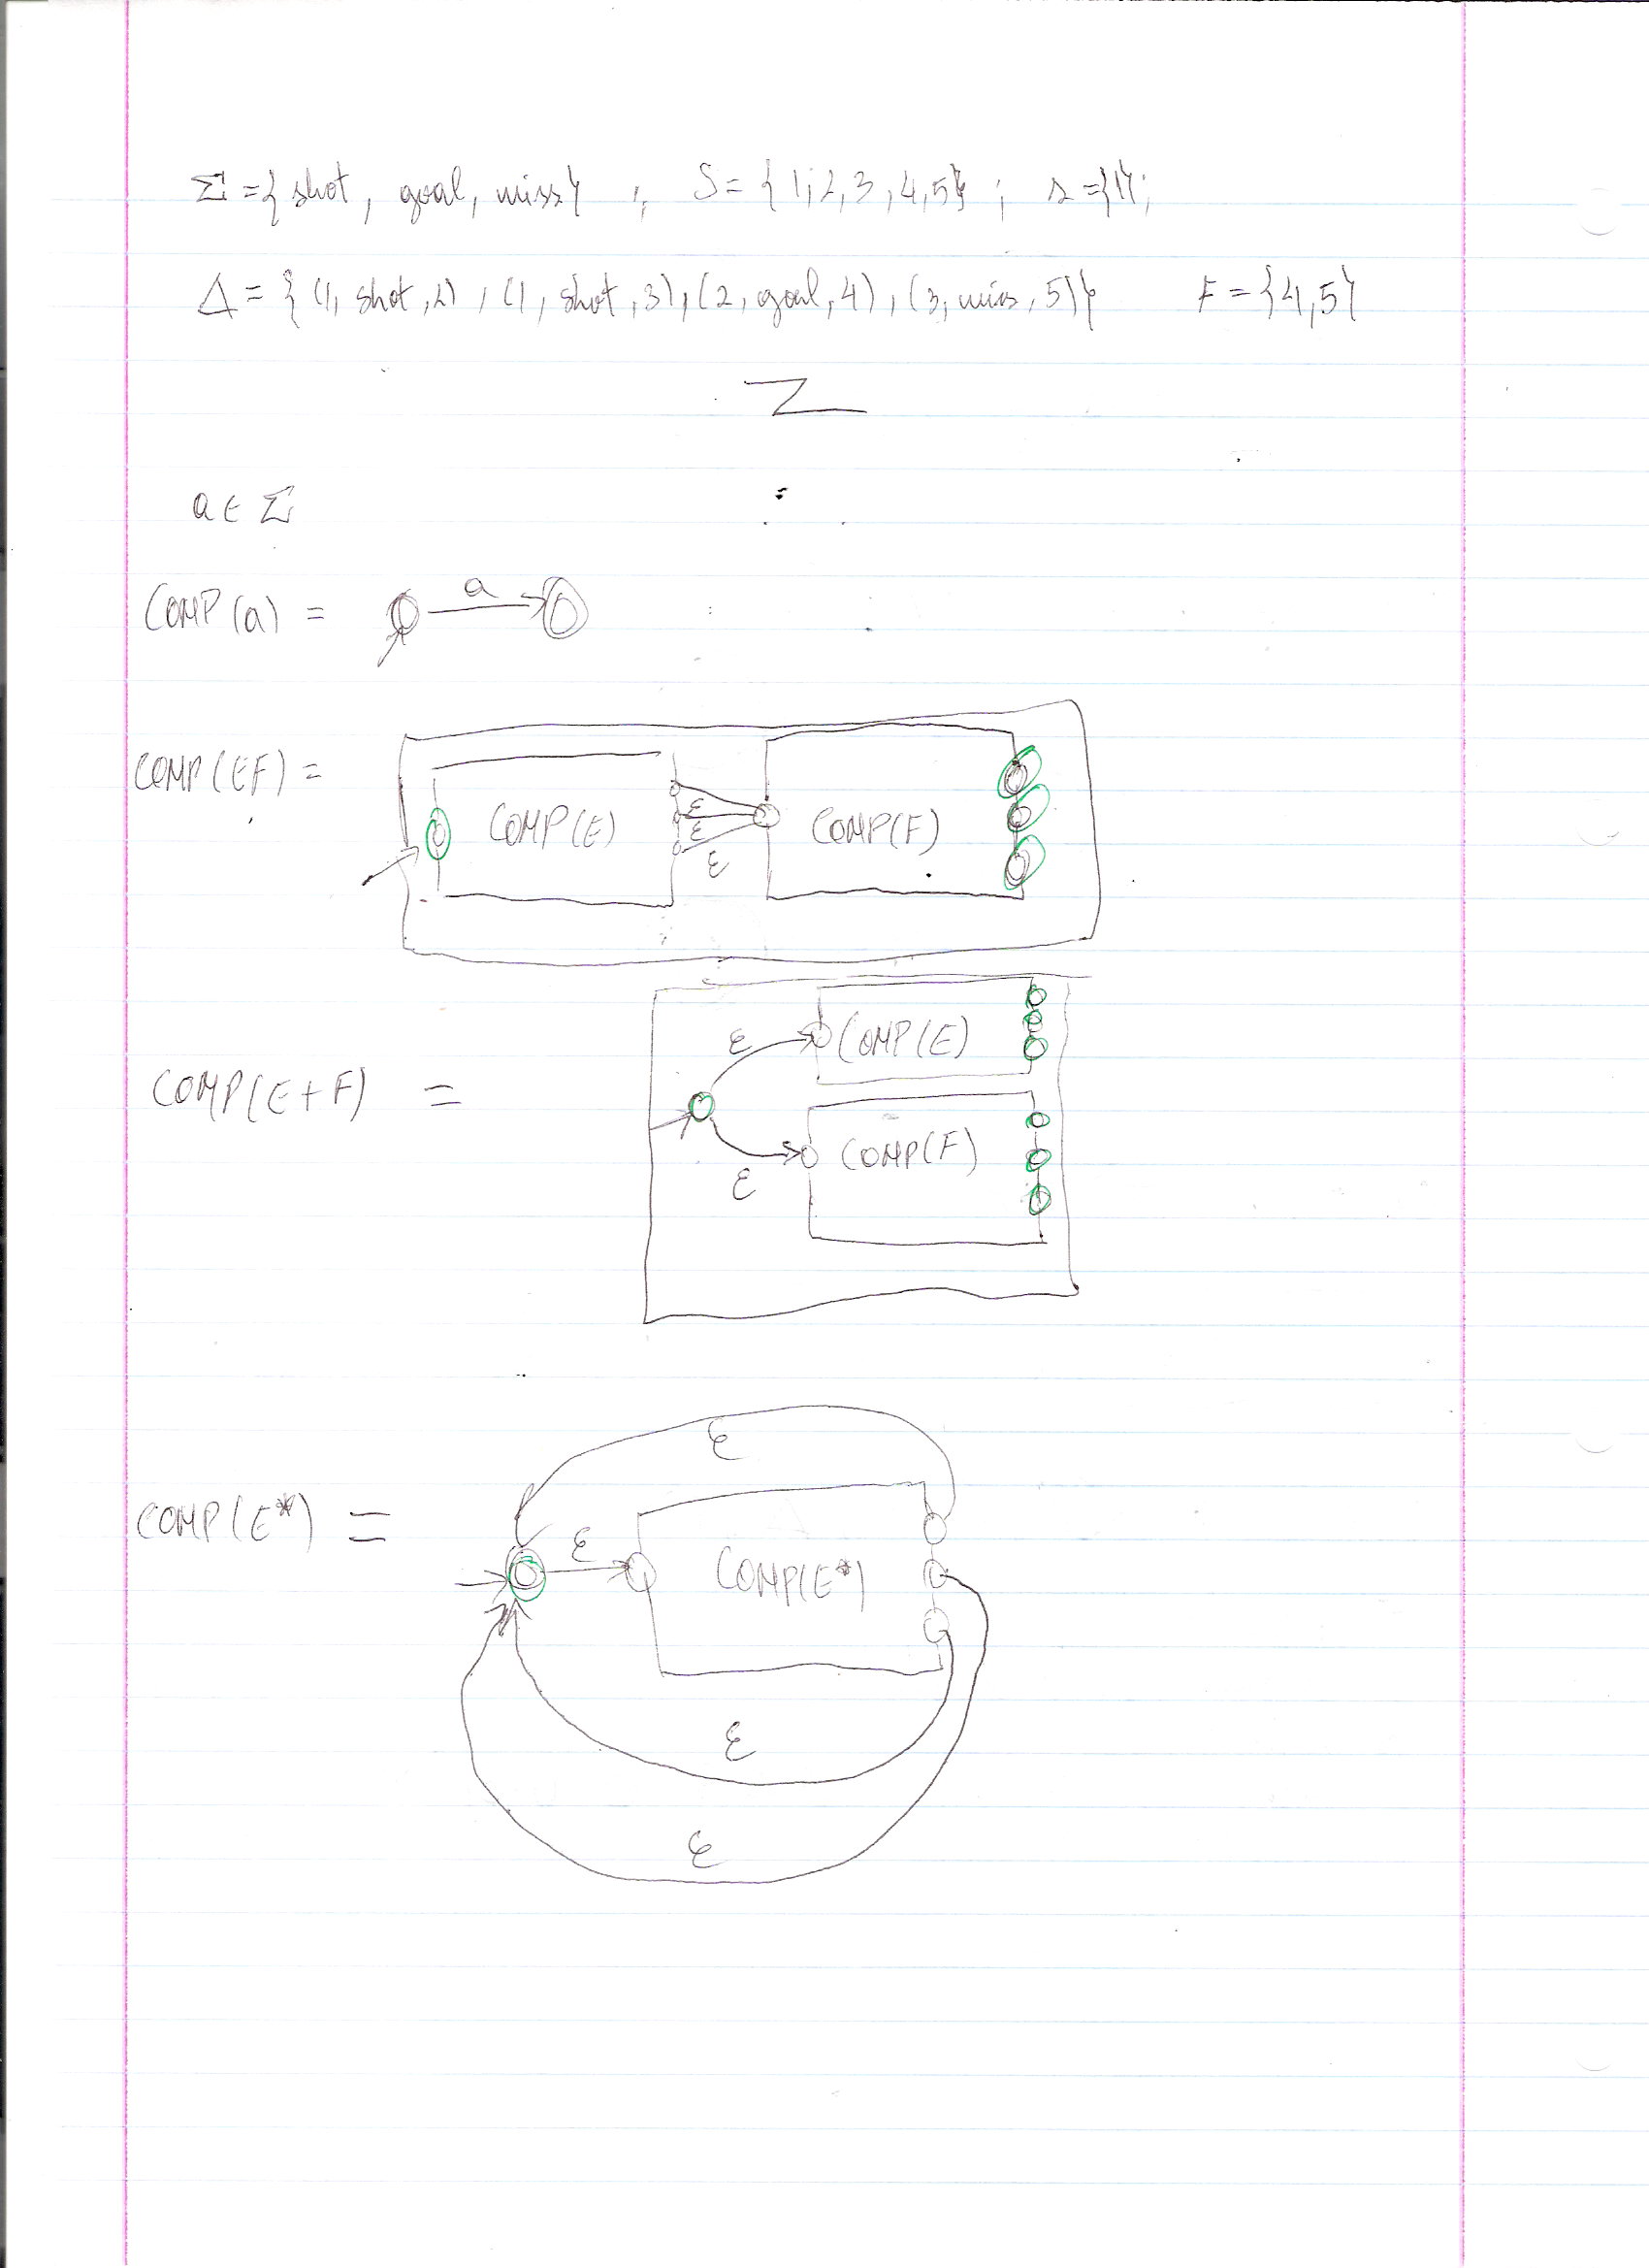 Σ = { shot, goal, miss} ; S = { 1, 2, 3, 4, 5} ; s = {1};
Δ = { (1, shot, 2) , (1, shot, 3), (2, goal, 4) , (3, miss, 5)} F = {4,5}
a ∈ Σ
COMP (a) = a
COMP (EF) = COMP(E) ε ε ε COMP(F)
ε COMP(E)
COMP(E+F) =
ε COMP(F)
ε
COMP(E*) = ε COMP(E*)
ε
ε